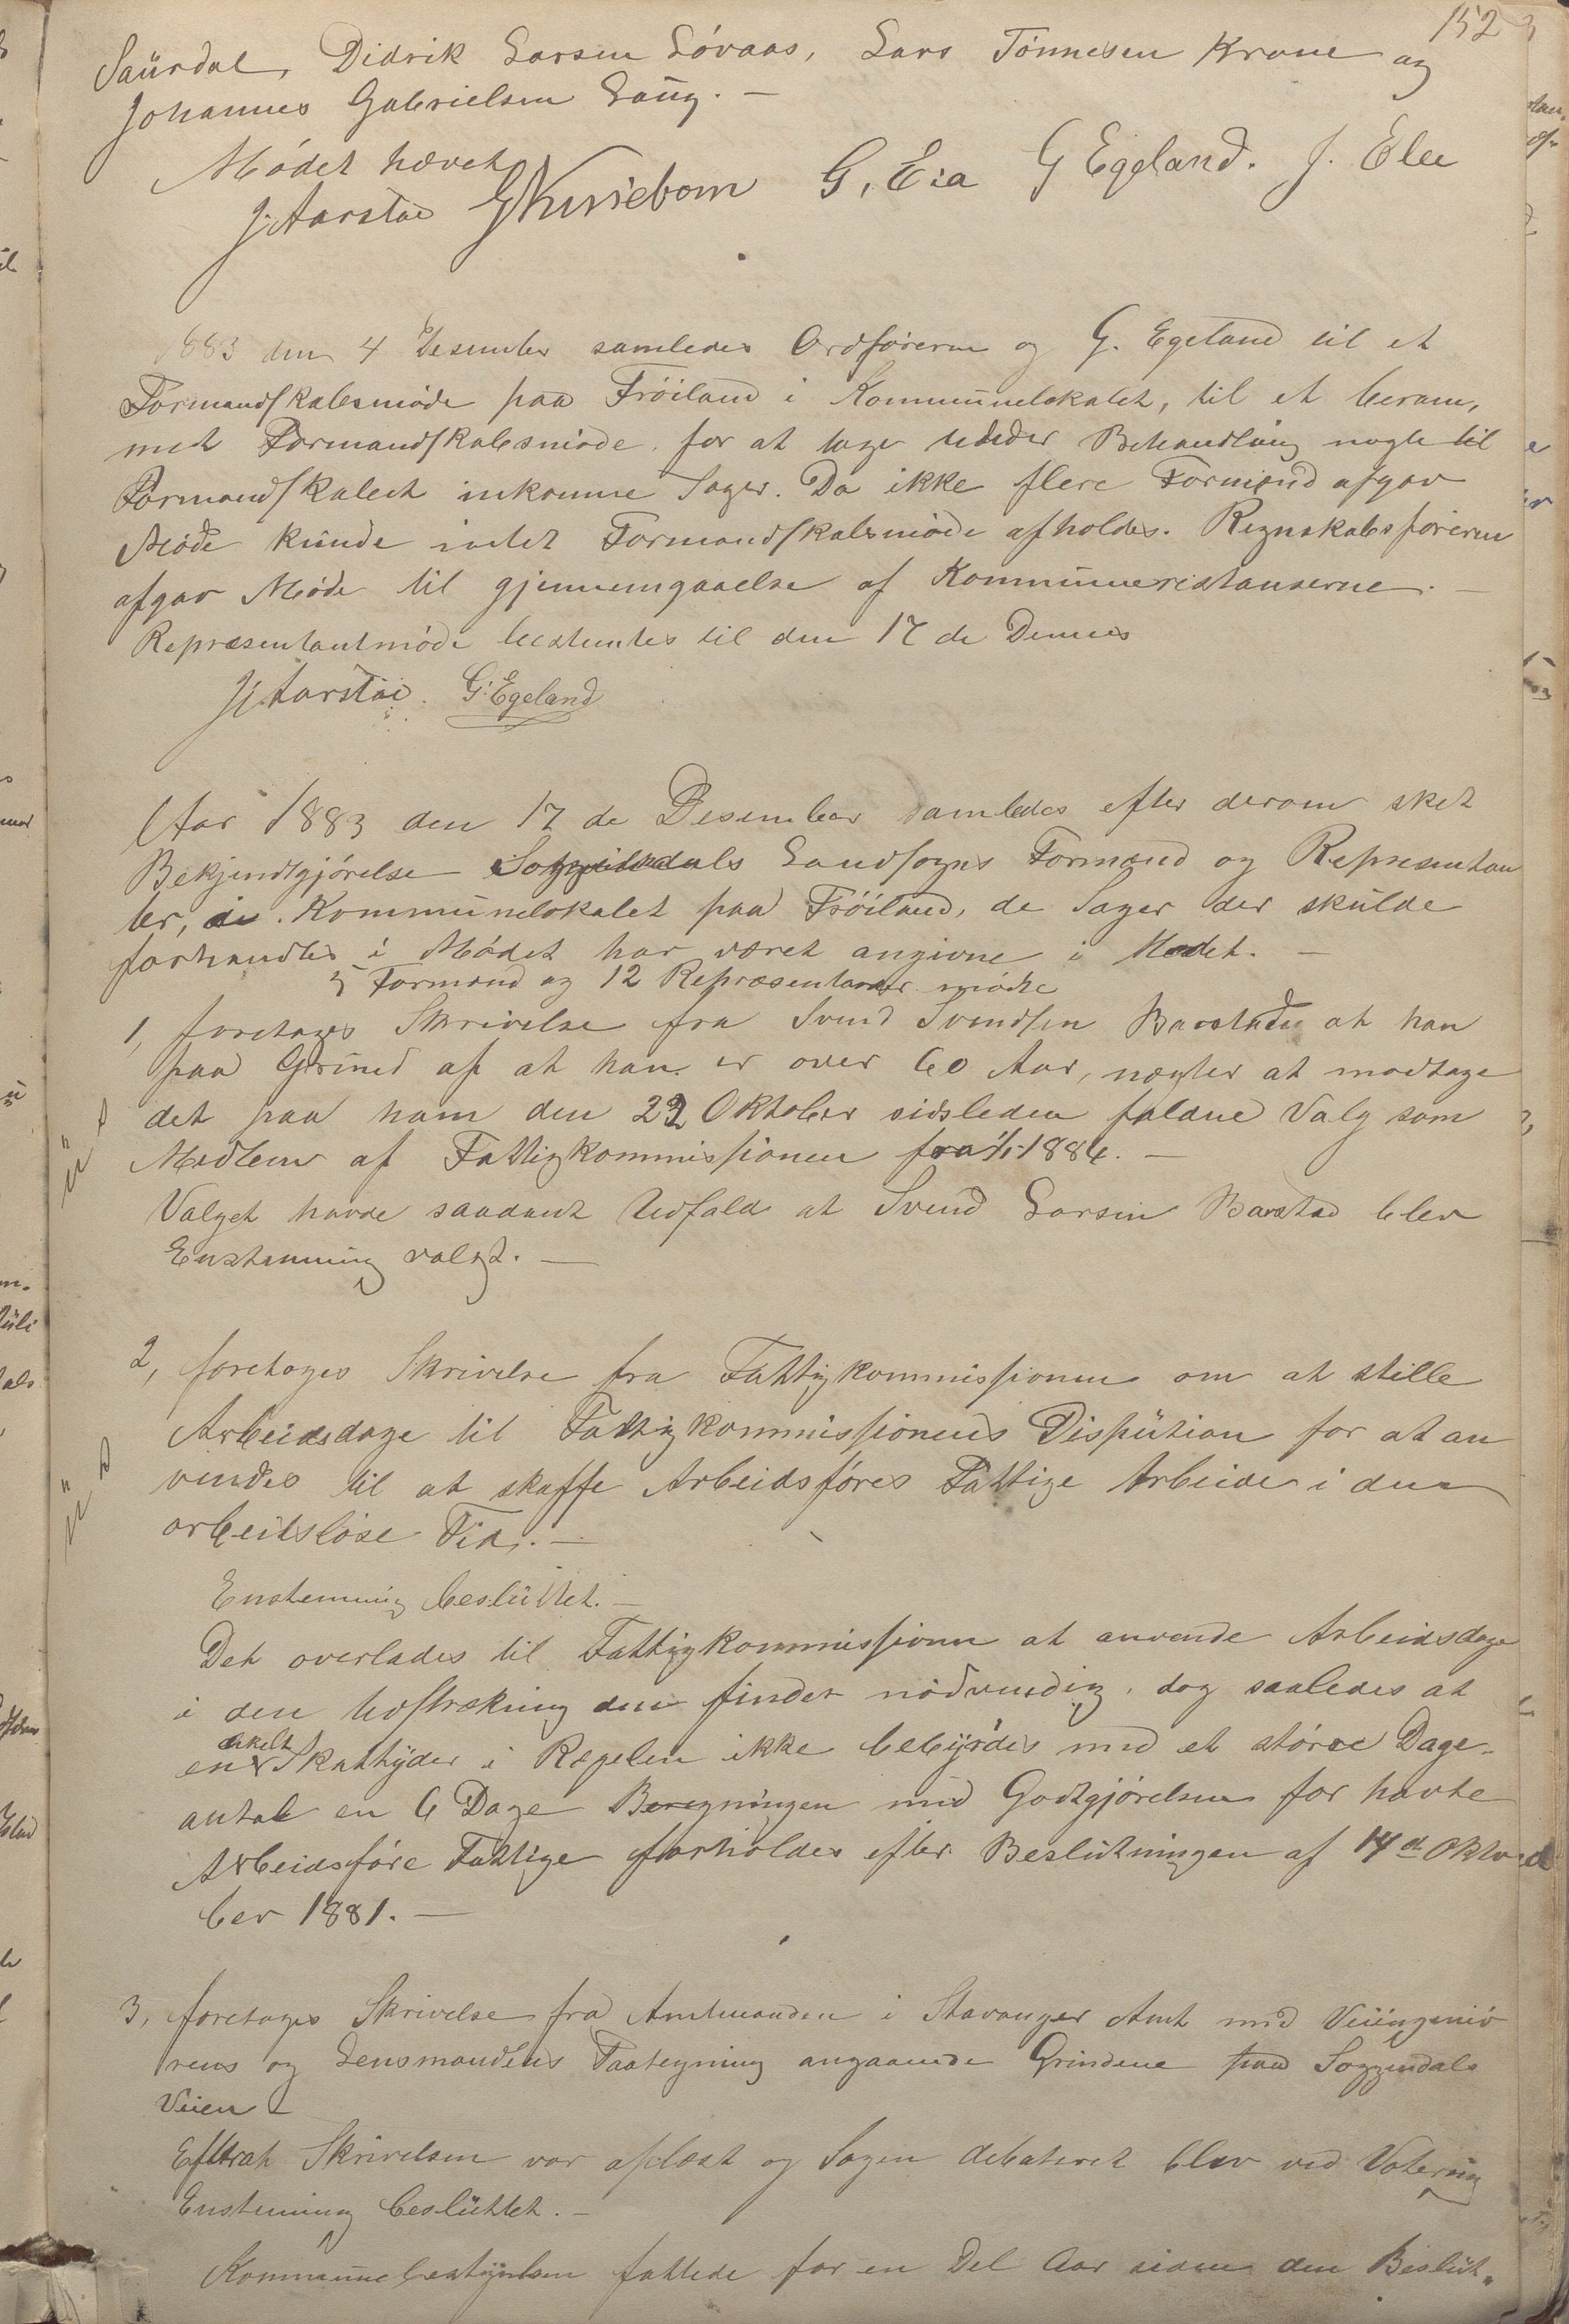 152
Saurdal, Didrik Larsen Løvaas, Lars Tønnesen Krone og
Johannes Gabrielsen Saug. —
Mødet hævet
J. Aarstad G Kuniebom G. Eia G Egeland. J. Elle
1883 den 4 Desember samledes Ordføreren og G. Egeland til et
Formandskabsmøde paa Frøiland i Kommunelokalet, til et beram,
met Formandskabsmøde for at tage under Behandling nogle til
Formandskabet inkomne Sager. Da ikke flere Formænd afgav
Møde kunde intet Formandskabsmøde afholdes. Regnskabsføreren
afgav Møde til gjennemgaaelse af Kommuneristanserne. —
Repræsentantmøde bestemtes til den 17 de Dennes
J. Aarstad. G. Egeland
Aar 1883 den 17 de Desember samledes efter derom sket
Bekjendtgjørelse Soggendals Landsogns Formænd og Represintan
ter, i Kommunelokalet paa Frøiland, de Sager der skulde
forhandles i Mødet har været angivne i Mødet. —
5 Formænd og 12 Repræsentanter mødte
1, foretages Skrivelse fra Svend Svendsen Barstad at han
paa Grund af at han er over 60 Aar, nægter at modtage
det paa ham den 22 Oktober sidsleden faldne Valg som
Medlem af Fattigkommissionen fra 1/1 1884. —
Valget havde saadant Udfald at Svend Larsen Barstad blev
Enstemmig valgt. —
2, foretages Skrivelse fra Fattigkommissionen om at stille
Arbeidsdage til Fattigkommissionens Dispution for at an
vendes til at skaffe Arbeidsføres Fattige Arbeide i den
arbeidsløse Tid. —
Enstemmig besluttet. —
Det overlades til Fattigkommissionen at anvende Arbeidsdage
i den Udstrækning den finder nødvendig, dog saaledes at
enkelt
en Skattyder i Regelen ikke bebyrdes med et større Dage-
antal en 6 Dage Beregningen med Godtgjørelsen for havte
Arbeidsføre Fattige forholdes efter Beslutningen af 14 de Okto
ber 1881. —
3, foretages Skrivelse fra Amtmanden i Stavanger Amt med Veiingeniø
rens og Lensmandens Paategning angaaende Grindene paa Soggendals
Veien —
Efterat Skrivelsen var aflæst og Sagen debateret blev ved Votering
Enstemmig besluttet. —
Kommunebestyrelsen fattede for en Del Aar siden den Beslut-